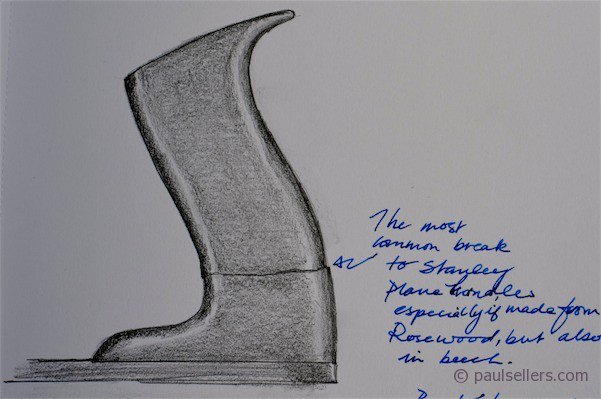 The most
common break
to Stanley
Plane handles
especially if made from
Rosewood, but also
in beech.
© paulsellers.com